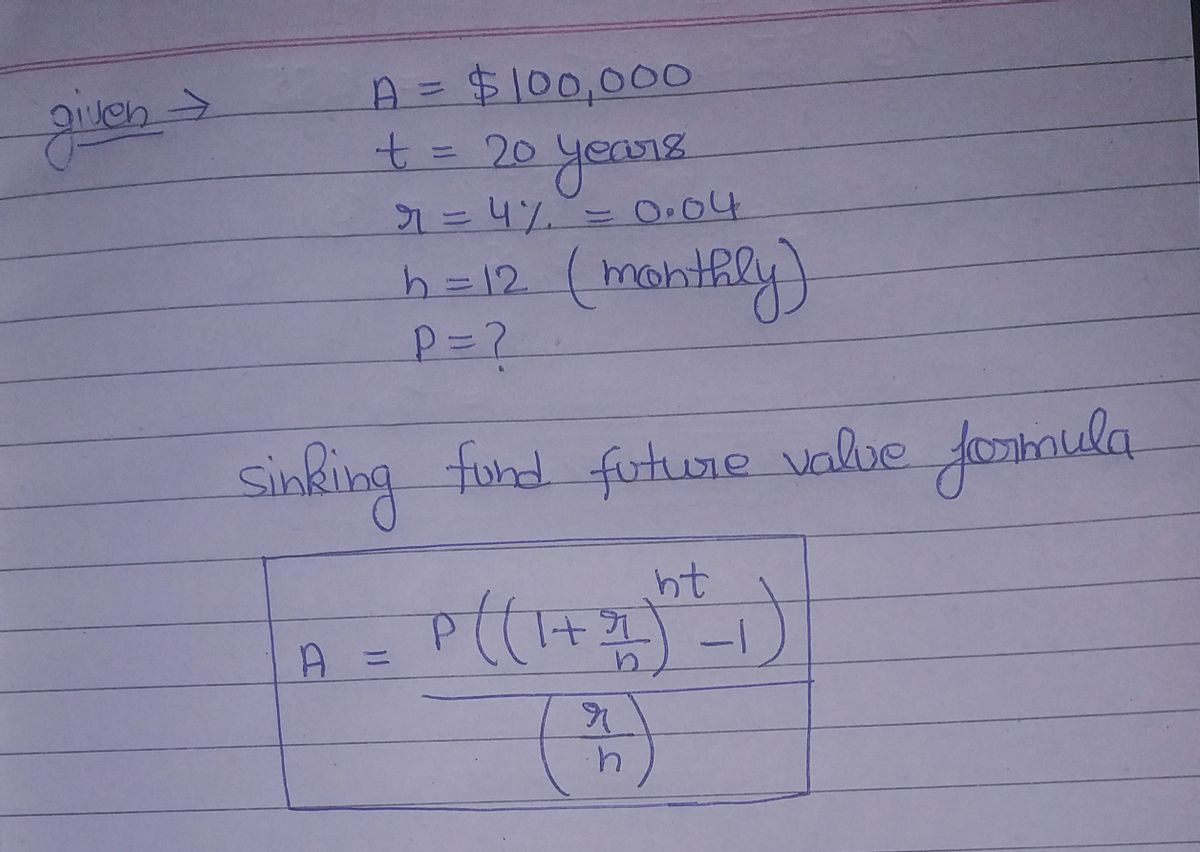 given → A = $100,000
t = 20 years
r = 4% = 0.04
n = 12 (monthly)
P = ?
sinking fund future value formula
A = P((1+r/n)^nt -1) / (r/n)